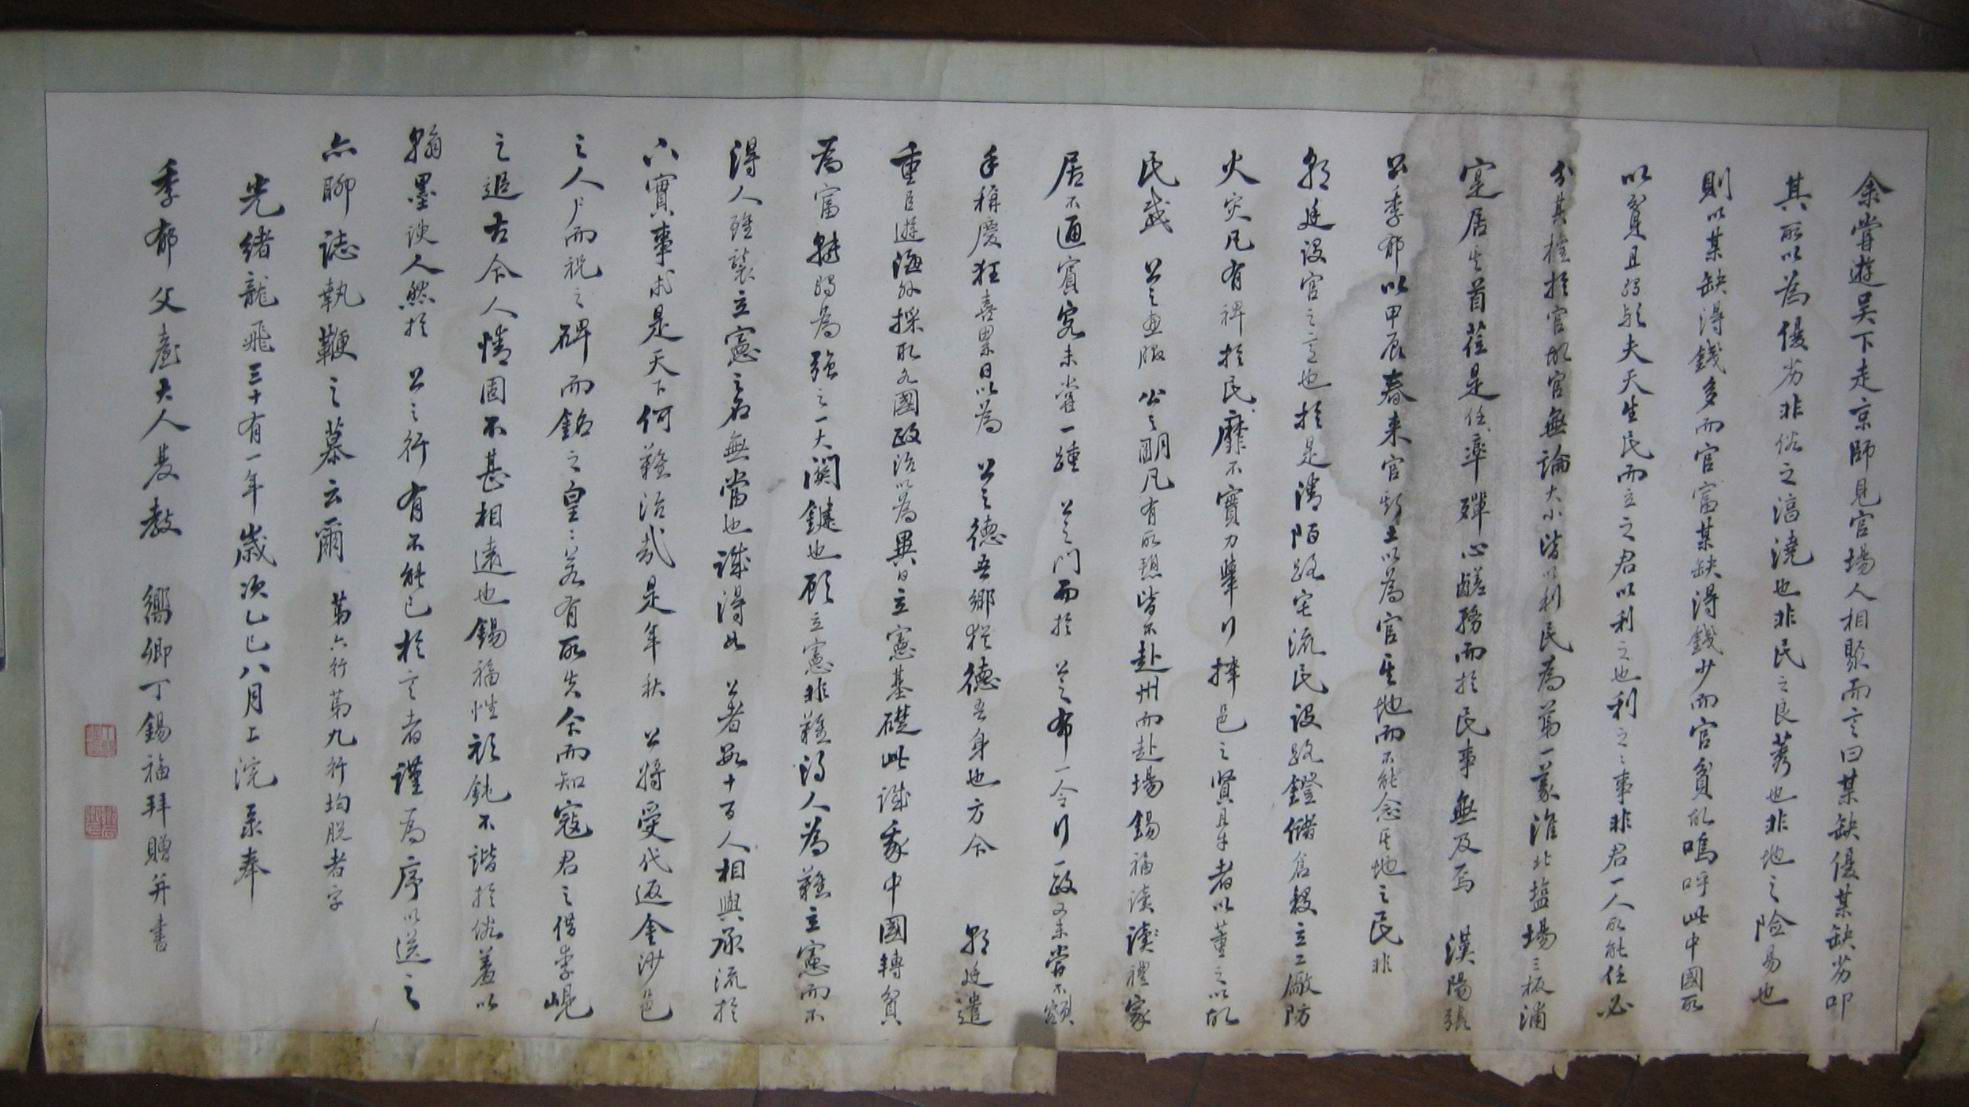 余嘗遊吴下走京師見官場人相聚而言曰某缺優某缺劣叩
其所以為優劣非俗之淳澆也非民之良莠也非地之險易也
則以某缺得錢多而官富某缺得錢少而官貧故嗚呼此中國所
以貧且弱歟夫天生民而立之君以利之也利之之事非君一人所能任必
分其權於官故官無論大小皆以利民為第一義淮北鹽場三板浦
寔居其首蒞是任率殫心鹺務而於民事無及焉 漢陽張
公季郁以甲辰春来官斯土以為官其地而不能念其地之民非
朝廷設官之意也於是濬陌路宅流民設路鐙儲倉穀立工廠防
火灾凡有裨於民靡不實力舉行擇邑之賢且才者以董之以故
民感 公之惠服 公之明凡有所愬皆不赴州而赴場錫福讀禮家
居不通賓客未嘗一踵 公之門而於 公之布一令行一政又未嘗不額
手稱慶狂喜累日以為 公之德吾鄉猶德吾身也方今 朝廷遣
重臣遊海外採取各國政治以為異日立憲基礎此誠我中國轉貧
為富轉弱為強之一大關鍵也顧立憲非難得人為難立憲而不
得人雖襲立憲之名無當也誠得如 公者數十百人相與承流於
下實事求是天下何難治哉是年秋 公將受代返金沙邑
之人尸而祝之碑而銘之皇皇若有所失余而知寇君之借李崐
之追古今人情固不甚相遠也錫福性頑鈍不諧於俗羞以
翰墨諛人然於 公之行有不能已於言者謹為序以送之
亦聊誌執鞭之慕云爾 第六行第九行均脱者字
光緒龍飛三十有一年歲次乙巳八月上浣录奉
季郁父臺大人斧教 嚮卿丁錫福拜贈并書